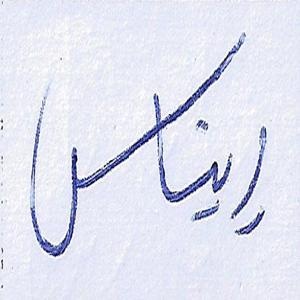 ريناس